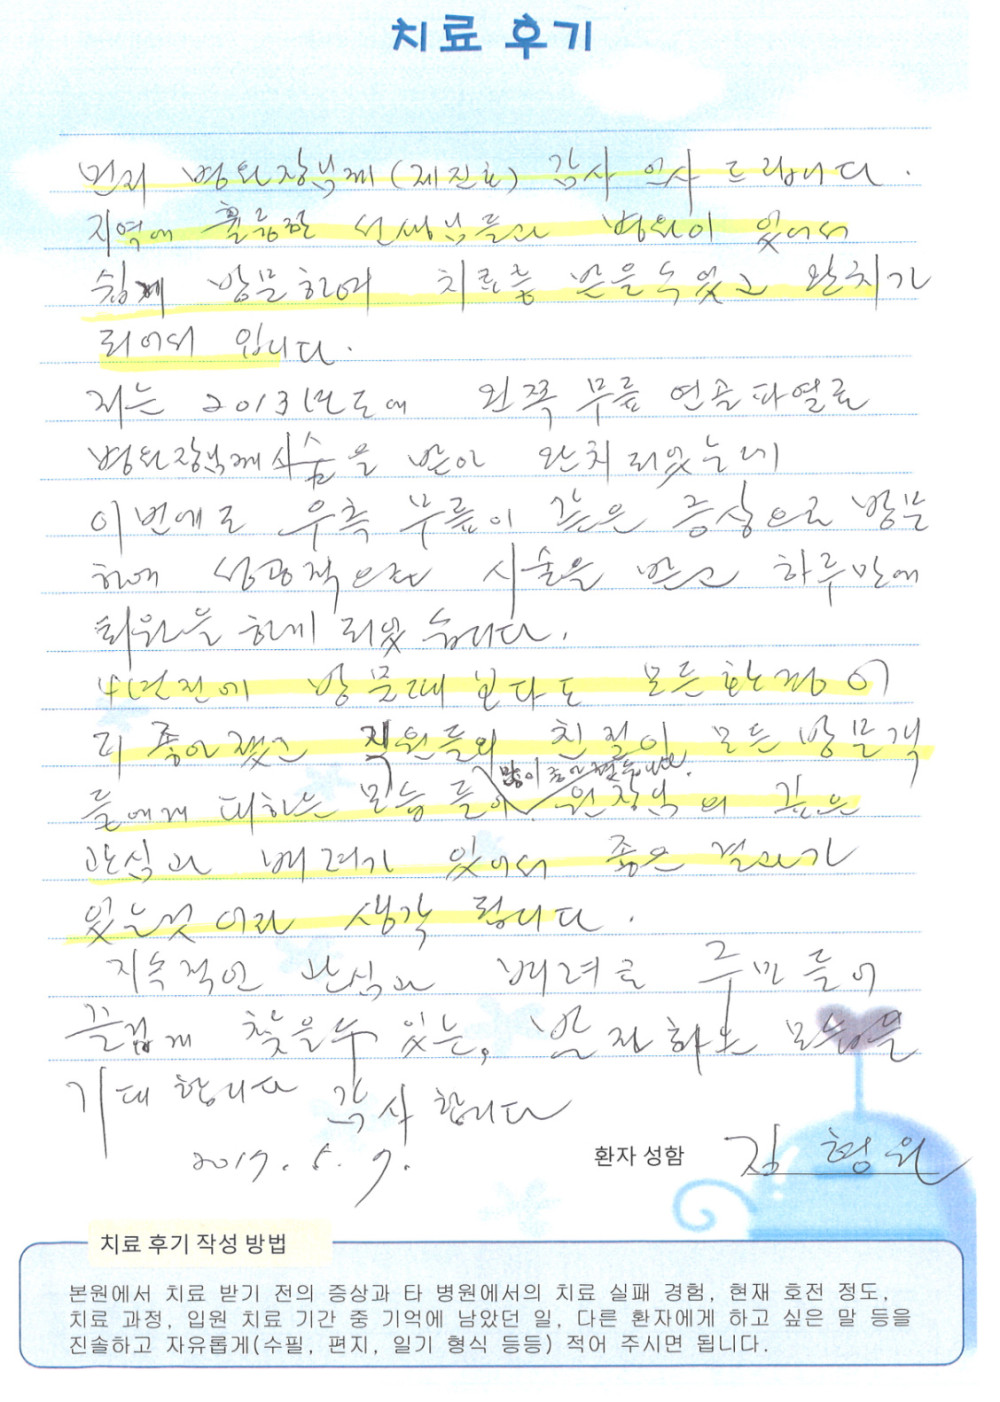 치료 후기
먼저 병원장님께(제진호) 감사 인사 드립니다.
지역에 훌륭한 선생님들과 병원이 있어서
쉽게 방문하여 치료를 받을수 있고 완치가
되어서 입니다.
저는 2013년도에 왼쪽 무릎 연골파열로
병원장님께 시술을 받아 완치 되었는데
이번에도 우측 무릎이 같은 증상으로 방문
하여 성공적으로 시술을 받고 하루만에
퇴원을 하게 되었습니다.
4년전에 방문때 보다도 모든환경이
더 좋아졌고 직원들의 친절이 모든 방문객
많이 좋아졌습니다.
들에게 대하는 모습들이 원장님의 깊은
관심과 배려가 있어서 좋은 결과가
있는것 이라 생각 됩니다.
지속적인 관심과 배려로 주민들이
즐겁게 찾을수 있는, 발전하는 모습을
기대 합니다 감사 합니다
2017. 5. 7.
환자 성함 김형원
치료 후기 작성 방법
본원에서 치료 받기 전의 증상과 타 병원에서의 치료 실패 경험, 현재 호전 정도,
치료 과정, 입원 치료 기간 중 기억에 남았던 일, 다른 환자에게 하고 싶은 말 등을
진솔하고 자유롭게(수필, 편지, 일기 형식 등등) 적어 주시면 됩니다.